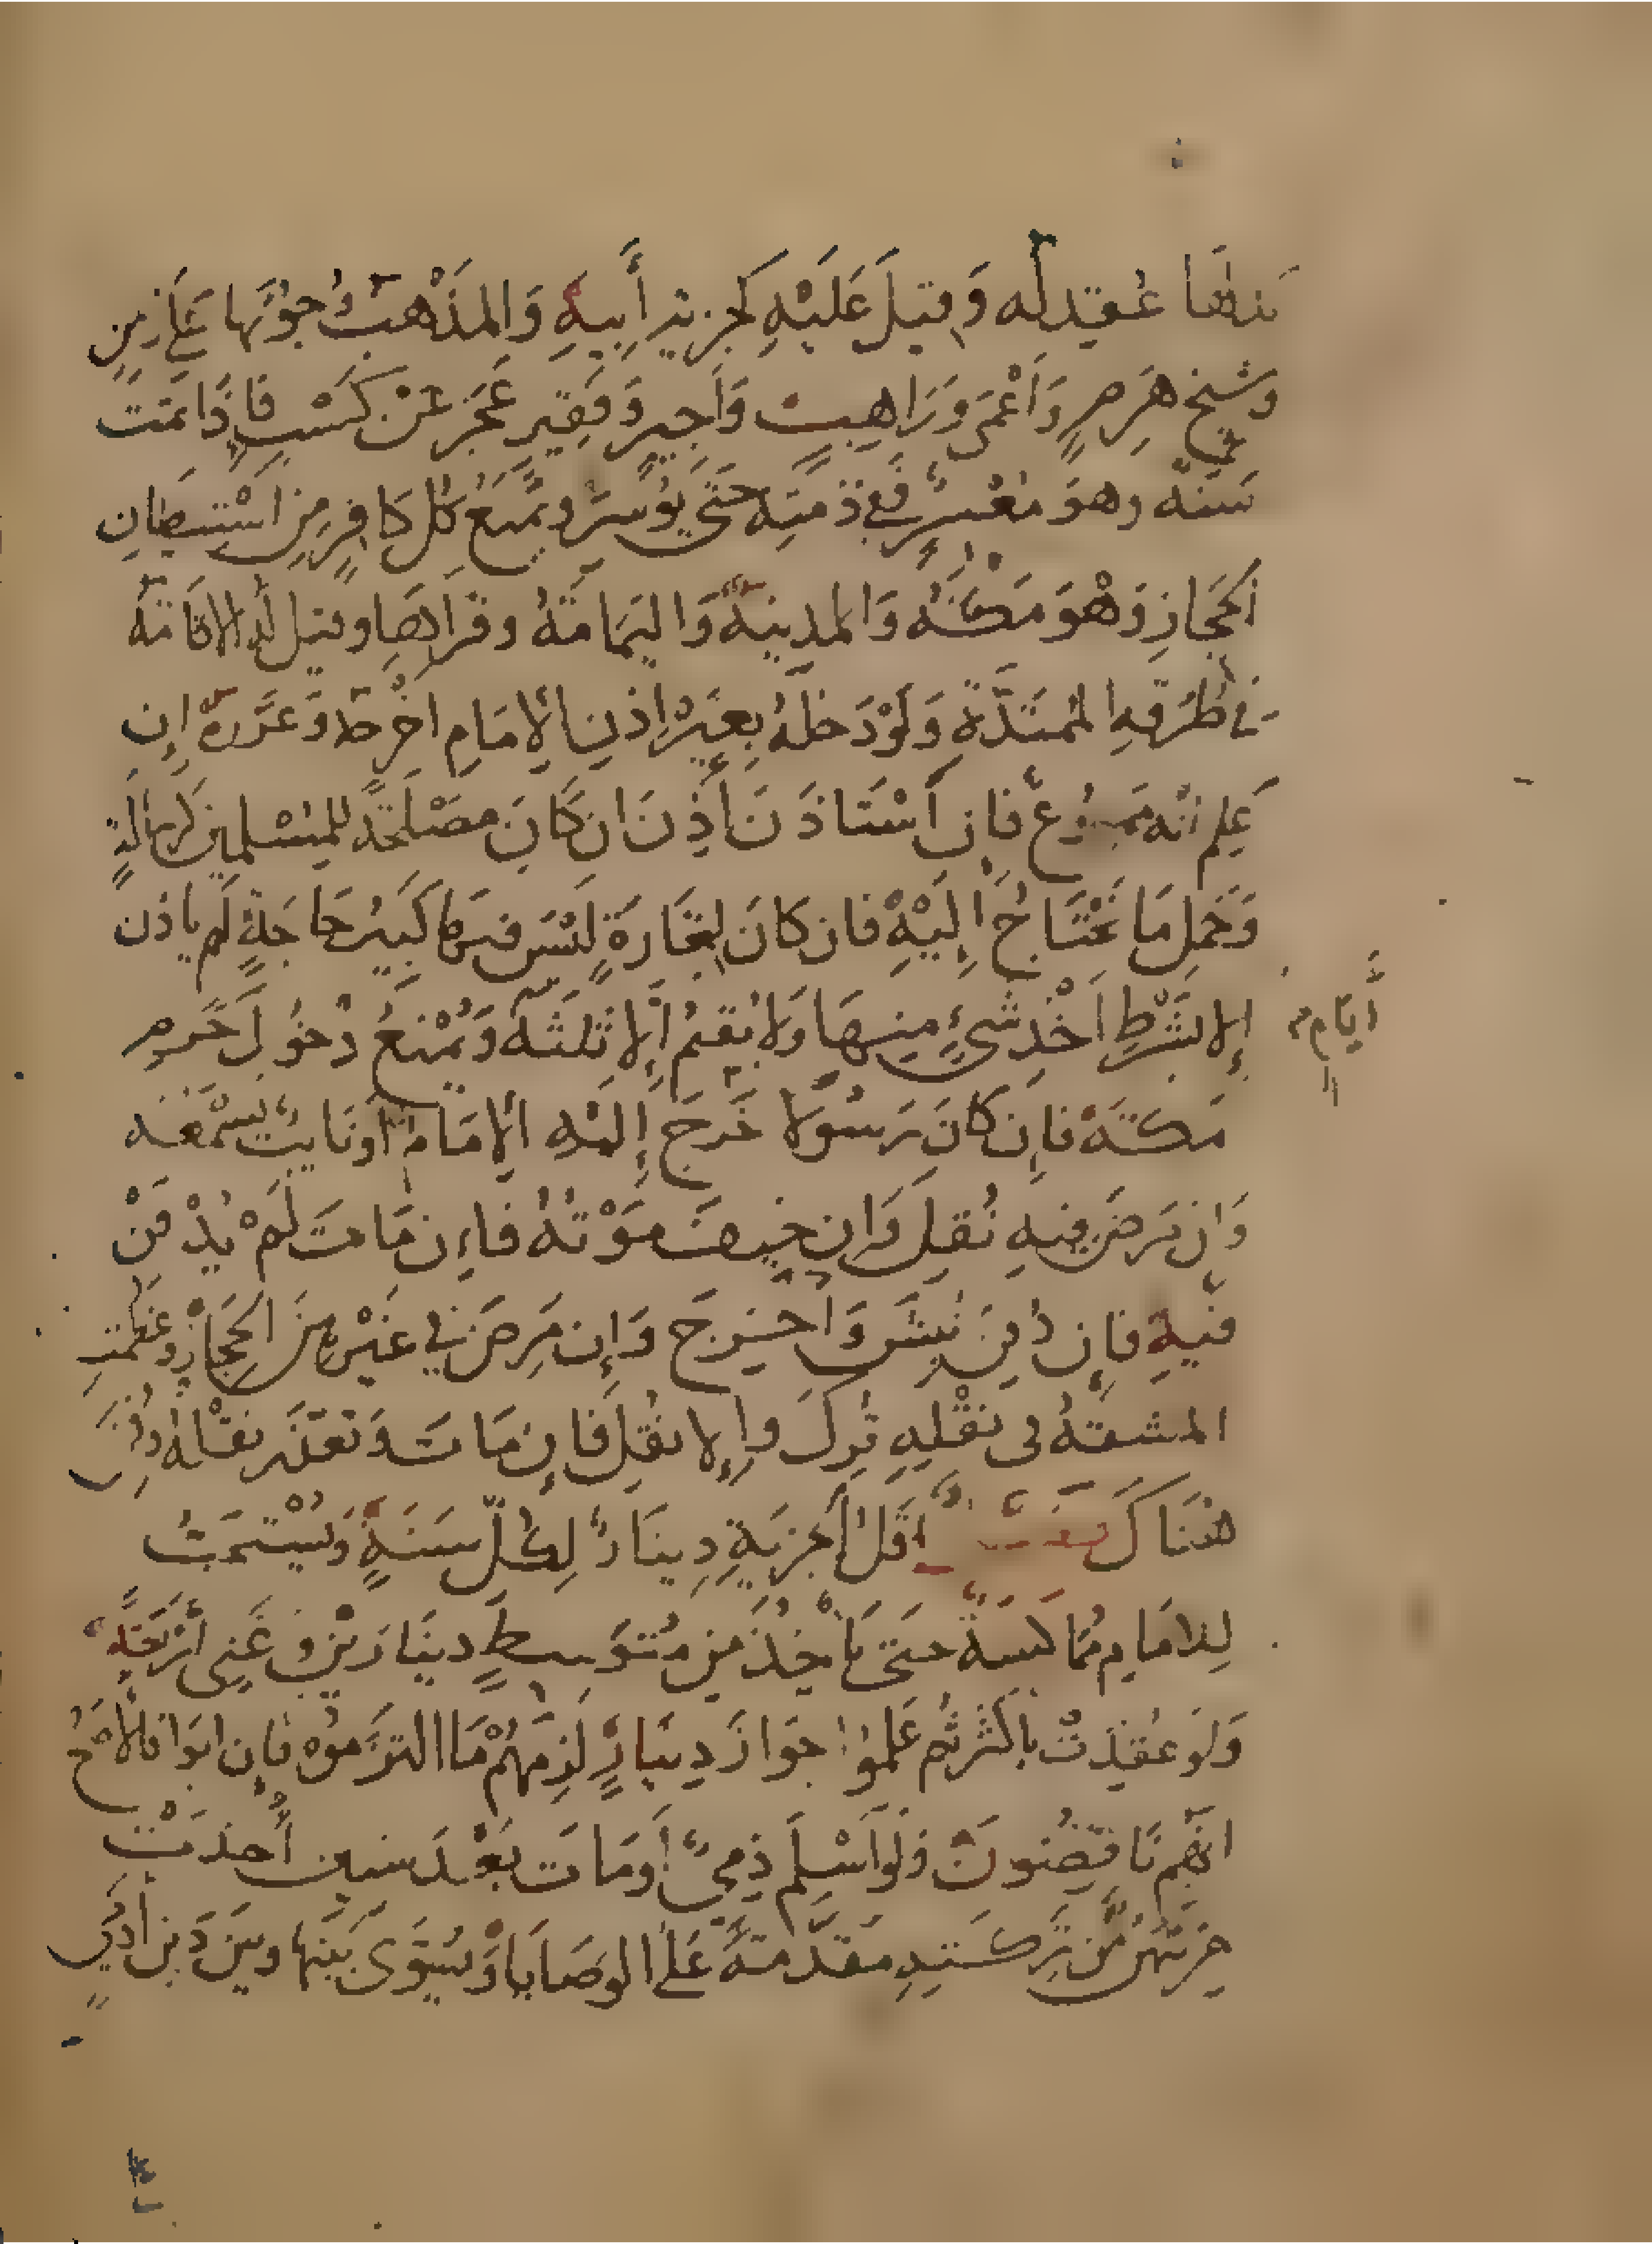 بذلها عقد له وقيل عليه كجزية أبيه والمذهب وجوبها على زمن
وشيخ هرم وأعمى وراهب وأجير وفقير عجز عن كسب فإذا تمت
سنة وهو معسر ففي ذمته حتى يوسر ويمنع كل كافر من استيطان
الحجاز وهو مكة والمدينة واليمامة وقراها وقيل له الاقامة
في طرقه الممتدة ولو دخله بغير إذن الإمام اخرجه وعزره إن
علم انه ممنوع فان استأذن أذن ان كان مصلحة للمسلمين كرسالة
وحمل ما يحتاج إليه فان كان لتجارة ليس فيها كبير حاجة لم ياذن
إلا بشرط أخذ شيء منها ولا يقيم إلا ثلثة ويمنع دخول حرم
أيام
مكة فإن كان رسولا خرج إليه الإمام أو نايب يسمعه
وان مرض فيه نقل وان خيف موته فإن مات لم يدفن
فيه فإن دفن نبش وأخرج وإن مرض في غيره من الحجاز وعظمت
المشقة في نقله ترك وإلا نقل فإن مات وتعذر نقله دفن
هناك اقل الجزية دينار لكل سنة ويستحب
للامام مماكسة حتى يأخذ من متوسط دينارين وغني أربعة
ولو عقدت بأكثر ثم علموا جواز دينار لزمهم ما التزموه فإن ابوا فالأصح
انهم ناقضون ولو أسلم ذمي أو مات بعد سنين أخذت
جزيتهن من تركته مقدمة على الوصايا ويسوى بينها وبين دين آدمي